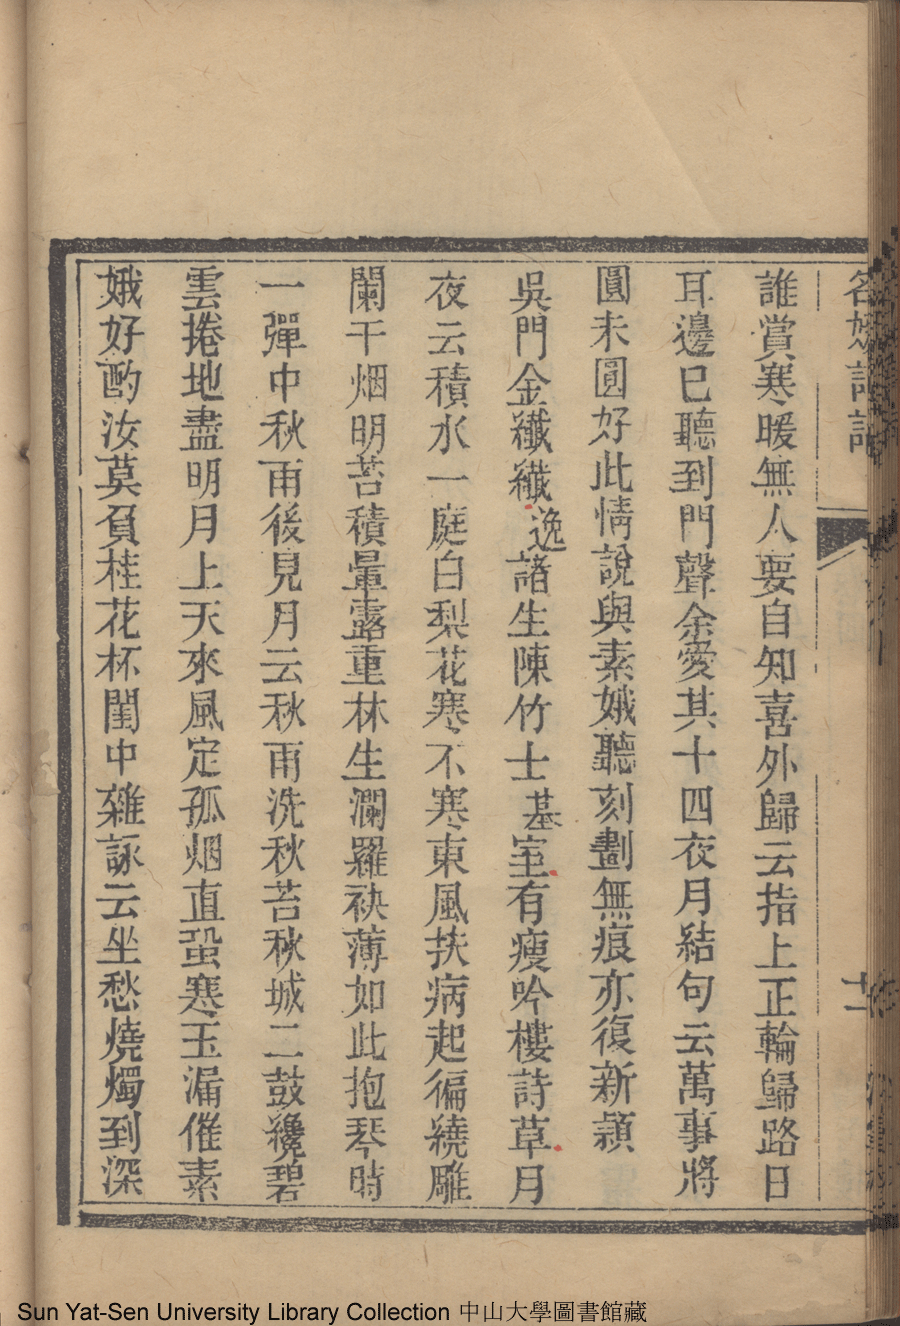 名媛詩話
十
誰賞寒暖無人要自知喜外歸云指上正輪歸路日
耳邊已聽到門聲余愛其十四夜月結句云萬事將
圓未圓好此情說與素娥聽刻劃無痕亦復新穎
吳門金纖纖逸諸生陳竹士基室有瘦吟樓詩草月
夜云積水一庭白梨花寒不寒東風扶病起徧繞雕
闌干烟明苔積暈露重林生瀾羅袂薄如此抱琴時
一彈中秋雨後見月云秋雨洗秋苔秋城二鼓纔碧
雲捲地盡明月上天來風定孤烟直蛩寒玉漏催素
娥好酌汝莫負桂花杯閨中雜詠云坐愁燒燭到深
Sun Yat-Sen University Library Collection 中山大學圖書館藏